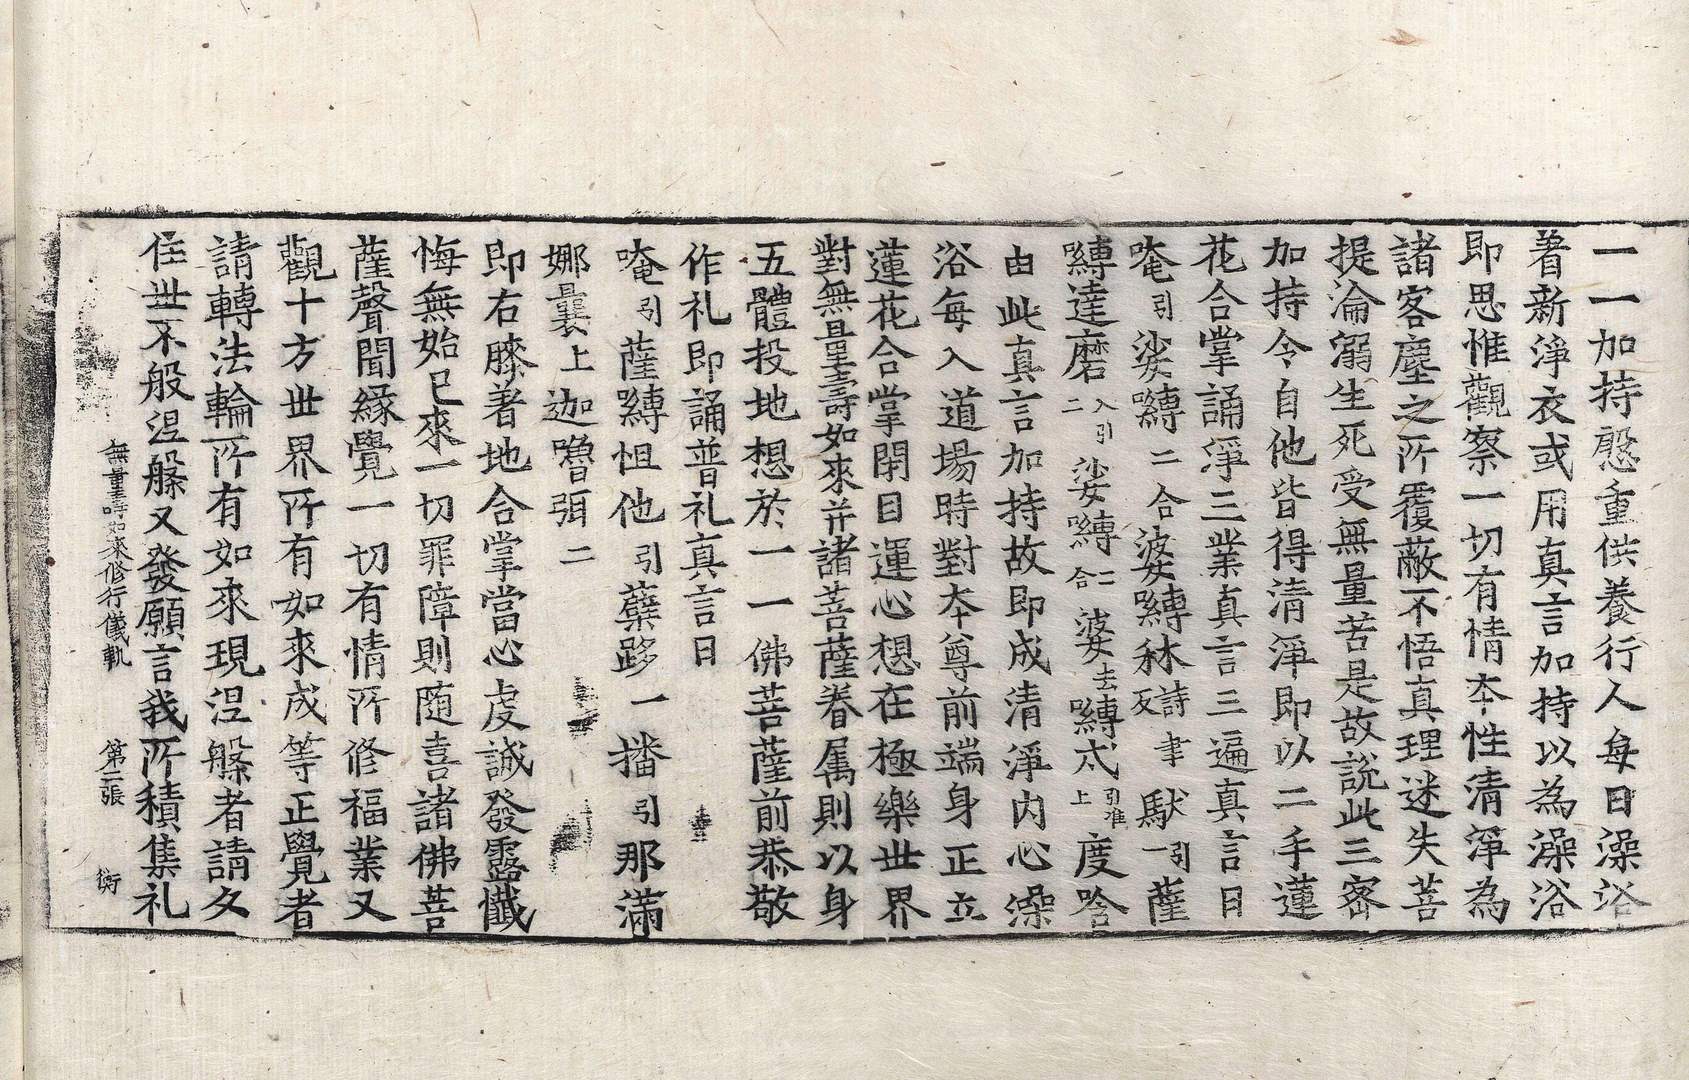 一一加持慇重供養行人每日澡浴
著新淨衣或用真言加持以為澡浴
即思惟觀察一切有情夲性清淨為
諸客塵之所覆蔽不悟真理迷失菩
提淪溺生死受無量苦是故說此三密
加持令自他皆得清淨即以二手蓮
花合掌誦淨三業真言三遍真言曰
唵引娑嚩二合婆嚩秫詩聿反馱引一薩
嚩達磨入引二娑嚩二合婆去嚩弍引准上度唅
由此真言加持故即成清淨内心澡
浴每入道場時對夲尊前端身正立
蓮花合掌閉目運心想在極樂世界
對無量壽如來并諸菩薩眷属則以身
五體投地想於一一佛菩薩前恭敬
作礼即誦普礼真言曰
唵引薩嚩怛他引蘖跢一播引那滿
娜曩上迦嚕弭二
即右膝著地合掌當心虔誠發露懺
悔無始已來一切罪障則随喜諸佛菩
薩聲聞緣覺一切有情所修福業又
觀十方世界所有如來成等正覺者
請轉法輪所有如來現涅槃者請久
住世不般涅槃又發願言我所積集礼
無量壽如來修行儀軌 第二張 衡